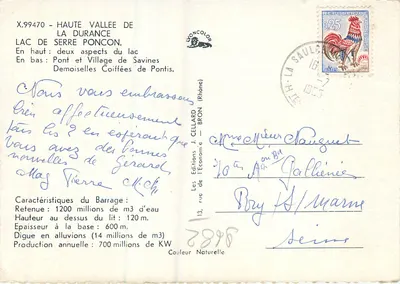 X.99470 - HAUTE VALLEE DE
LA DURANCE
LAC DE SERRE PONCON.
En haut : deux aspects du lac
En bas : Pont et Village de Savines
Demoiselles Coiffées de Pontis.
Nous vous embrassons
bien affectueusement
tous les 2 en espérant que
vous avez des bonnes
nouvelles de Gérard
Mag Pierre
Caractéristiques du Barrage :
Retenue : 1200 millions de m3 d'eau
Hauteur au dessus du lit : 120 m.
Epaisseur à la base : 600 m.
Digue en alluvions (14 millions de m3)
Production annuelle : 700 millions de KW
Couleur Naturelle
Les Editions J. CELLARD
13, rue de l'Economie - BRON (Rhône)
0.25
LA SAULCE
16
Mme Mr
Av Galliéni
Bry s/Marne
Seine
5862